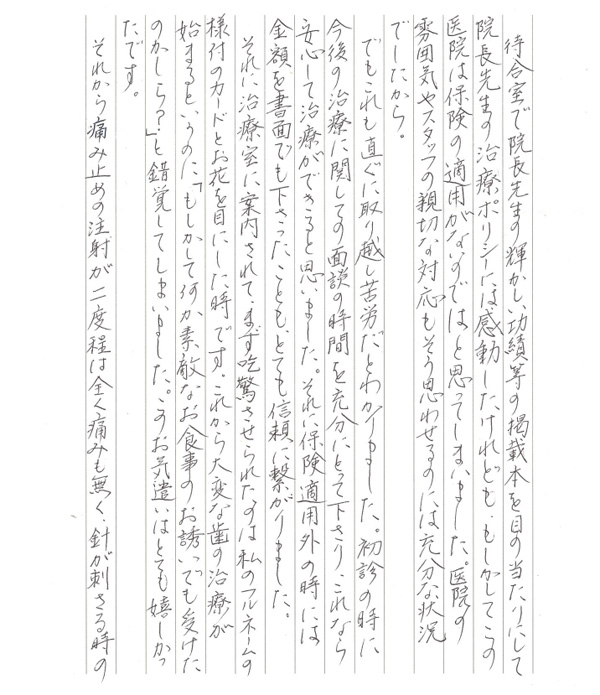 待合室で院長先生の輝かしい功績等の掲載本を目の当たりにして
院長先生の治療ポリシーには感動したけれども、もしかしてこの
医院は保険の適用がないのではと思ってしまいました。医院の
雰囲気やスタッフの親切な対応もそう思わせるのには充分な状況
でしたから。
でもこれも直ぐに取り越し苦労だとわかりました。初診の時に
今後の治療に関しての面談の時間を充分にとって下さり、これなら
安心して治療ができると思いました。それに保険適用外の時には
金額を書面でも下さったことも、とても信頼に繋がりました。
それに治療室に案内されて、まず吃驚させられたのは私のフルネームの
様付のカードとお花を目にした時です。これから大変な歯の治療が
始まるというのに「もしかして何か素敵なお食事のお誘いでも受けた
のかしら?」と錯覚してしまいました。このお気遣いはとても嬉しかっ
たです。
それから痛み止めの注射が二度程は全く痛みも無く、針が刺さる時の